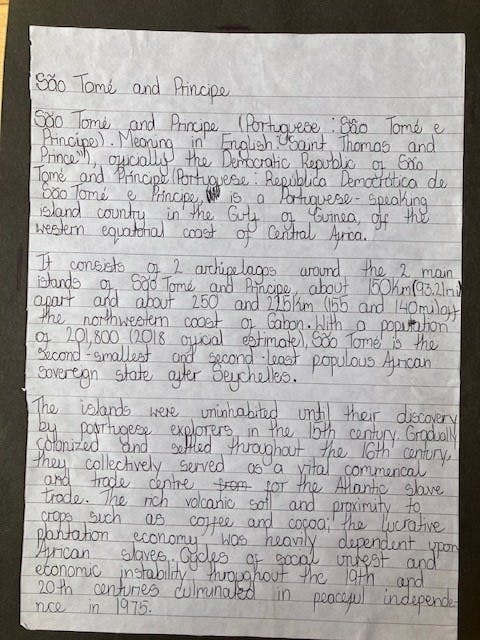 São Tomé and Principe
São Tomé and Principe (Portuguese : São Tomé e
Principe). Meaning in English "Saint Thomas and
Prince"), officially the Democratic Republic of São
Tomé and Principe (Portuguese : República Democrática de
São Tomé e Principe, is a Portuguese-speaking
island country in the Gulf of Guinea, off the
western equatorial coast of Central Africa.
It consists of 2 archipelagos around the 2 main
islands of São Tomé and Principe, about 150km (93.21mi)
apart and about 250 and 225km (155 and 140mi) off
the northwestern coast of Gabon. With a population
of 201,800 (2018 official estimate), São Tomé is the
second-smallest and second-least populous African
sovereign state after Seychelles.
The islands were uninhabited until their discovery
by portugese explorers in the 15th century. Gradually
colonized and settled throughout the 16th century,
they collectively served as a vital commerical
and trade centre from for the Atlantic slave
trade. The rich volcanic soil and proximity to
crops such as coffee and cocoa; the lucrative
plantation economy was heavily dependent upon
African slaves. Cycles of social unrest and
economic instability throughout the 19th and
20th centuries culminated in peaceful independe-
nce in 1975.